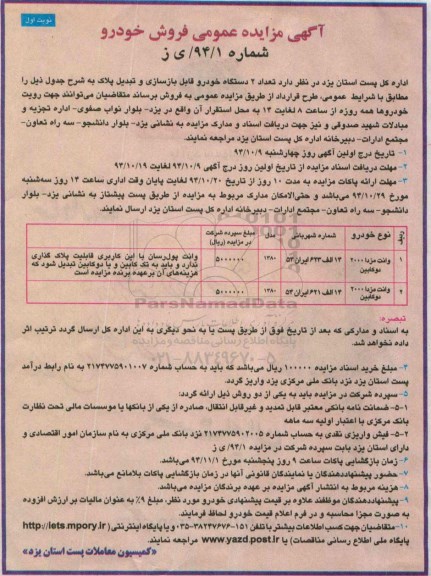 نوبت اول
آگهی مزایده عمومی فروش خودرو
شماره ۹۴/۱/ ی ز
اداره کل پست استان یزد در نظر دارد تعداد ۲ دستگاه خودرو قابل بازسازی و تبدیل پلاک به شرح جدول ذیل را
مطابق با شرایط عمومی، طرح قرارداد از طریق مزایده عمومی به فروش برساند متقاضیان می‌توانند جهت رویت
خودروها همه روزه از ساعت ۸ لغایت ۱۳ به محل استقرار آن واقع در یزد- بلوار نواب صفوی- اداره تجزیه و
مبادلات شهید صدوقی و نیز جهت دریافت اسناد و مدارک مزایده به نشانی یزد- بلوار دانشجو- سه راه تعاون-
مجتمع ادارات- دبیرخانه اداره کل پست استان یزد مراجعه نمایند.
۱- تاریخ درج اولین آگهی روز چهارشنبه ۹۳/۱۰/۹
۲- مهلت دریافت اسناد مزایده از تاریخ اولین روز درج آگهی ۹۳/۱۰/۹ لغایت ۹۳/۱۰/۱۹
۳- مهلت ارائه پاکات مزایده به مدت ۱۰ روز از تاریخ ۹۳/۱۰/۲۰ لغایت پایان وقت اداری ساعت ۱۴ روز سه‌شنبه
مورخ ۹۳/۱۰/۲۹ می‌باشد و حتی‌الامکان مدارک مربوط به مزایده از طریق پست پیشتاز به نشانی یزد- بلوار
دانشجو- سه راه تعاون- مجتمع ادارات- دبیرخانه اداره کل پست استان یزد ارسال نمایند.
ردیف نوع خودرو شماره شهربانی مدل مبلغ سپرده شرکت در مزایده (ریال)
۱ وانت مزدا ۲۰۰۰ دوکابین ۱۳ الف ۶۲۳ ایران ۵۳ ۱۳۸۰ ۵۰۰۰۰۰۰ وانت پول‌رسان با این کاربری قابلیت پلاک گذاری ندارد و باید به تک کابین و یا دوکابین تبدیل شود که هزینه‌های آن برعهده برنده مزایده است
۲ وانت مزدا ۲۰۰۰ دوکابین ۱۳ الف ۶۲۱ ایران ۵۳ ۱۳۸۰ ۵۰۰۰۰۰۰
ParsNamadData
پایگاه اطلاع رسانی مناقصه و مزایده
۰۲۱-۸۸۳۴۹۶۷۰-۵
تبصره:
به اسناد و مدارکی که بعد از تاریخ فوق از طریق پست یا به نحو دیگری به این اداره کل ارسال گردد ترتیب اثر
داده نخواهد شد.
۴- مبلغ خرید اسناد مزایده ۱۰۰۰۰۰ ریال می‌باشد که باید به حساب شماره ۲۱۷۴۷۷۵۹۰۱۰۰۷ به نام رابط درآمد
پست استان یزد نزد بانک ملی مرکزی یزد واریز گردد.
۵- سپرده شرکت در مزایده باید به یکی از دو روش ذیل ارائه گردد:
۵-۱- ضمانت نامه بانکی معتبر قابل تمدید و غیرقابل انتقال، صادره از یکی از بانکها یا موسسات مالی تحت نظارت
بانک مرکزی با اعتبار اولیه سه ماهه
۵-۲- فیش واریزی نقدی به حساب شماره ۲۱۷۴۷۷۵۹۰۲۰۰۵ نزد بانک ملی مرکزی به نام سازمان امور اقتصادی و
دارای استان یزد بابت سپرده شرکت در مزایده ۹۴/۱ ی ز
۶- زمان بازگشایی پاکات ساعت ۹ روز پنجشنبه مورخ ۹۳/۱۱/۱ می‌باشد.
۷- حضور پیشنهاددهندگان یا نمایندگان قانونی آنها در زمان بازگشایی پاکات بلامانع می‌باشد.
۸- هزینه مربوط به انتشار آگهی مزایده بر عهده برندگان مزایده می‌باشد.
۹- پیشنهاددهندگان موظفند علاوه بر قیمت پیشنهادی خودرو مورد نظر، مبلغ ۹٪ به عنوان مالیات بر ارزش افزوده
به صورت مجزا محاسبه و در فرم اعلام قیمت خودرو لحاظ فرمایند.
۱۰- متقاضیان جهت کسب اطلاعات بیشتر با تلفن ۱۵۱-۰۳۵-۳۸۲۴۷۶۷۶ و یا پایگاه اینترنتی (http://iets.mpory.ir
پایگاه ملی اطلاع رسانی مناقصات) یا www.yazd.post.ir مراجعه نمایند.
«کمیسیون معاملات پست استان یزد»